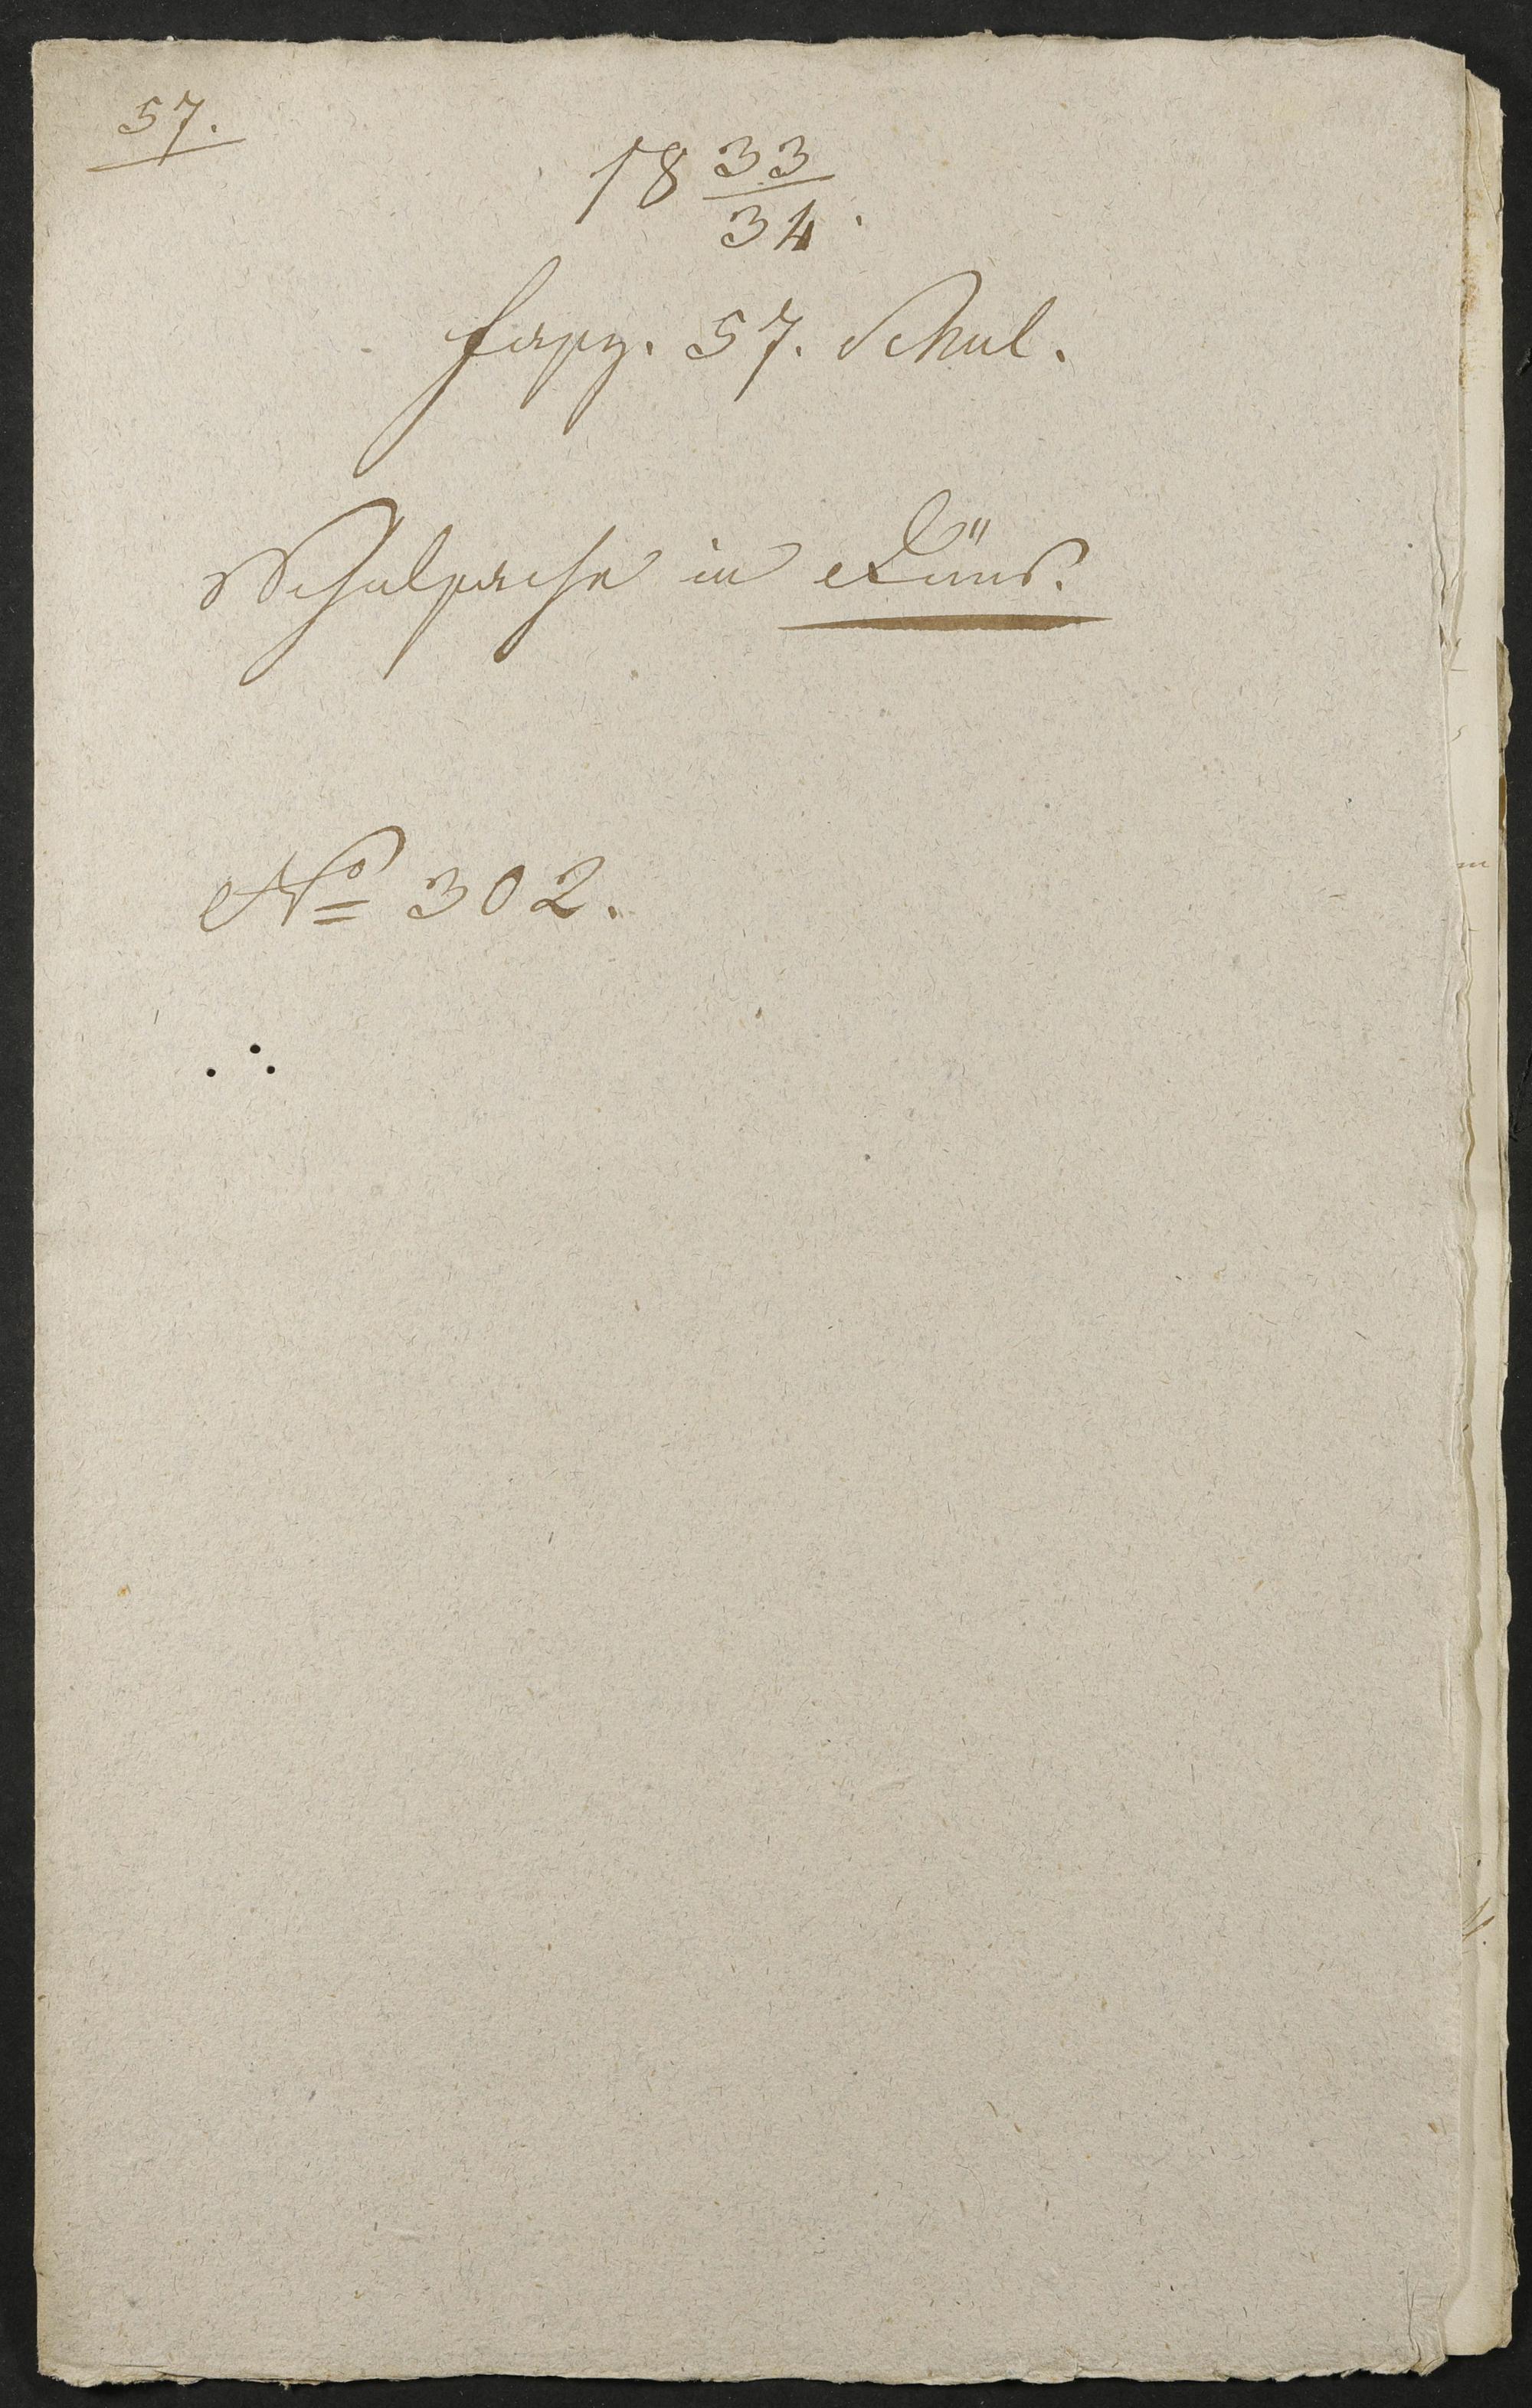 57.
18 33/34.
Fasz. 57. Schul.
Schulsache in Düns.
No 302.